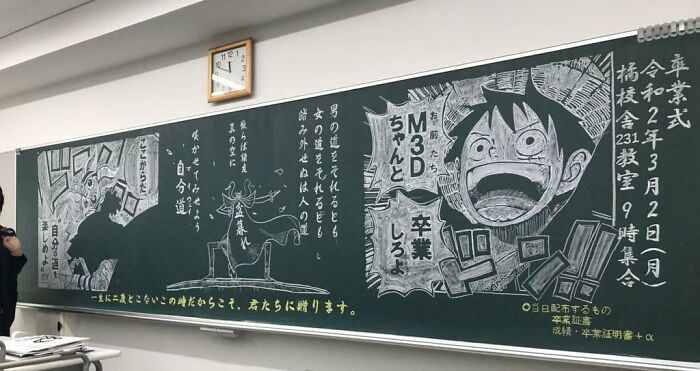 卒業式
令和2年3月2日(月)
橘校舎231教室 9時集合
お前たち
M3D
ちゃんと
卒業
しろよ
男の道をそれるとも
女の道をそれるとも
踏み外せぬは人の道
散らば諸友
真の空に
咲かせてみせよう
自分道
盆暮れ
ここからだ
自分の道を
楽しめよ
一生に二度とこないこの時だからこそ、君たちに贈ります。
○当日配布するもの
卒業証書
成績・卒業証明書+α